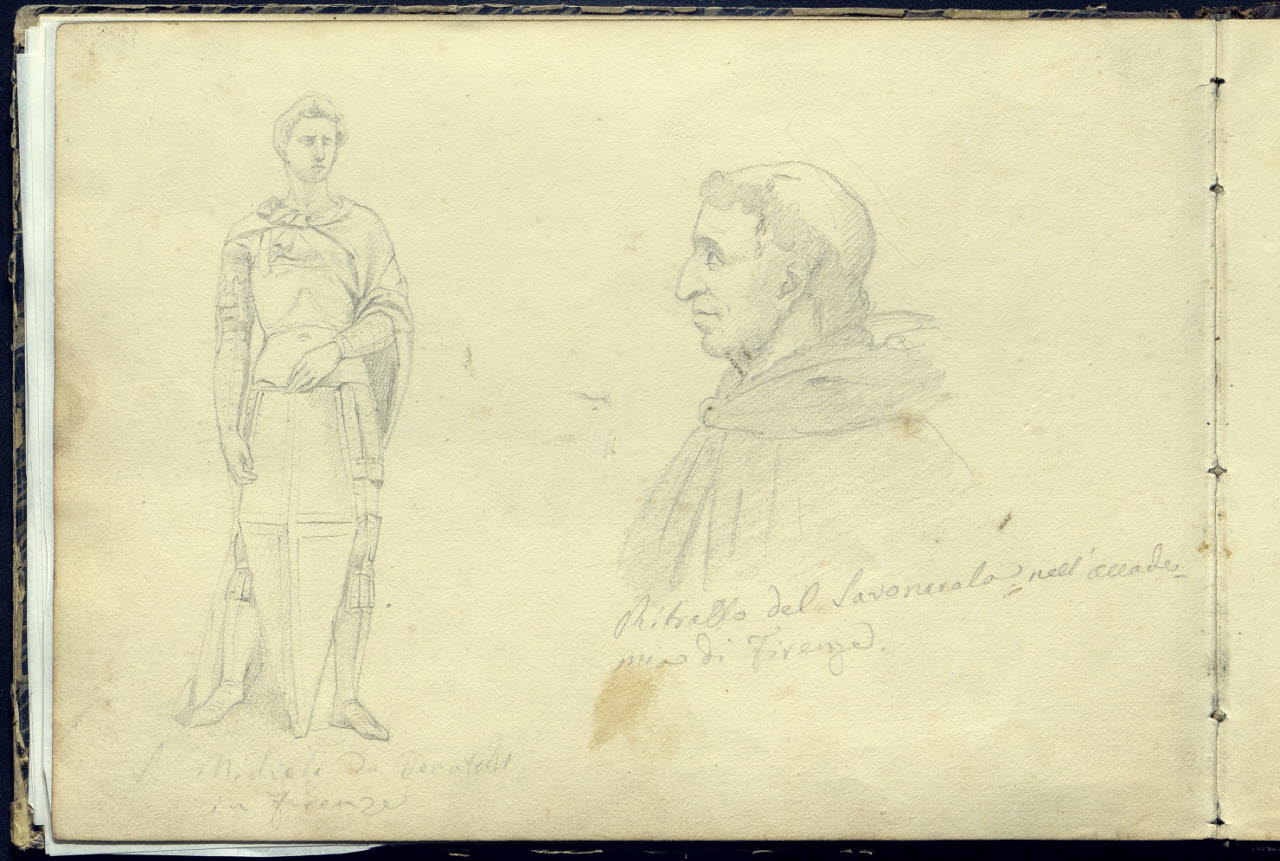 S. Michele da Donatello
in Firenze
Ritratto del Savonarola nell'accade_
mia di Firenze.